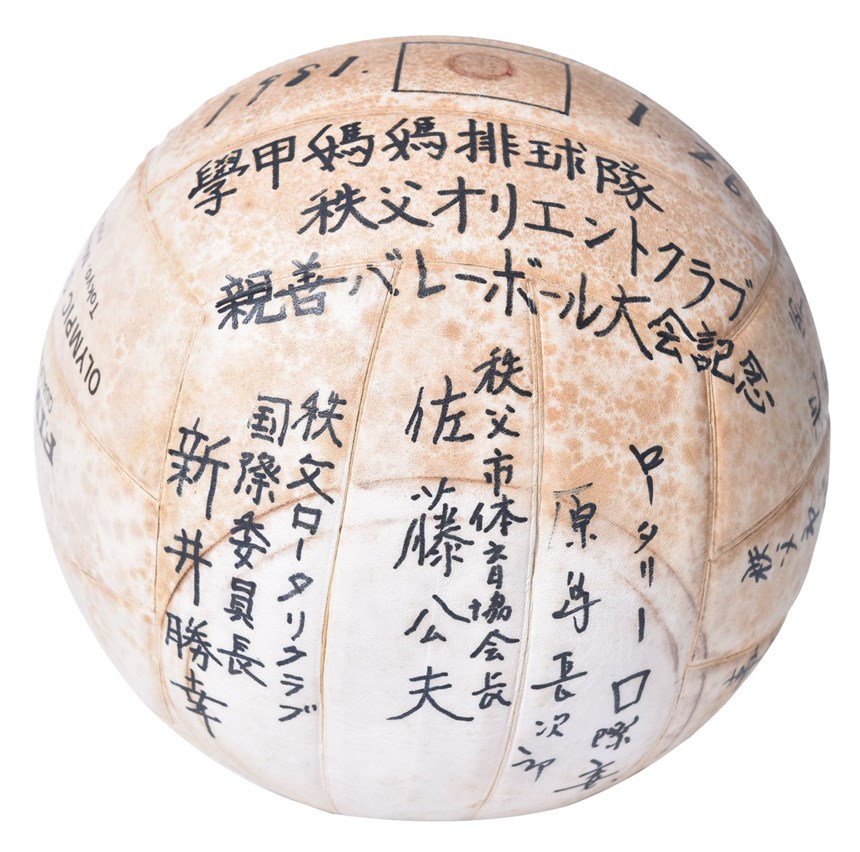 1981.
1.26
學甲媽媽排球隊
秩父オリエントクラブ
親善バレーボール大会記念
ロータリー
原島長次郎
秩父市体育協会長
佐藤公夫
秩父ロータリクラブ
国際委員長
新井勝幸
OLYMPIC
Tokyo